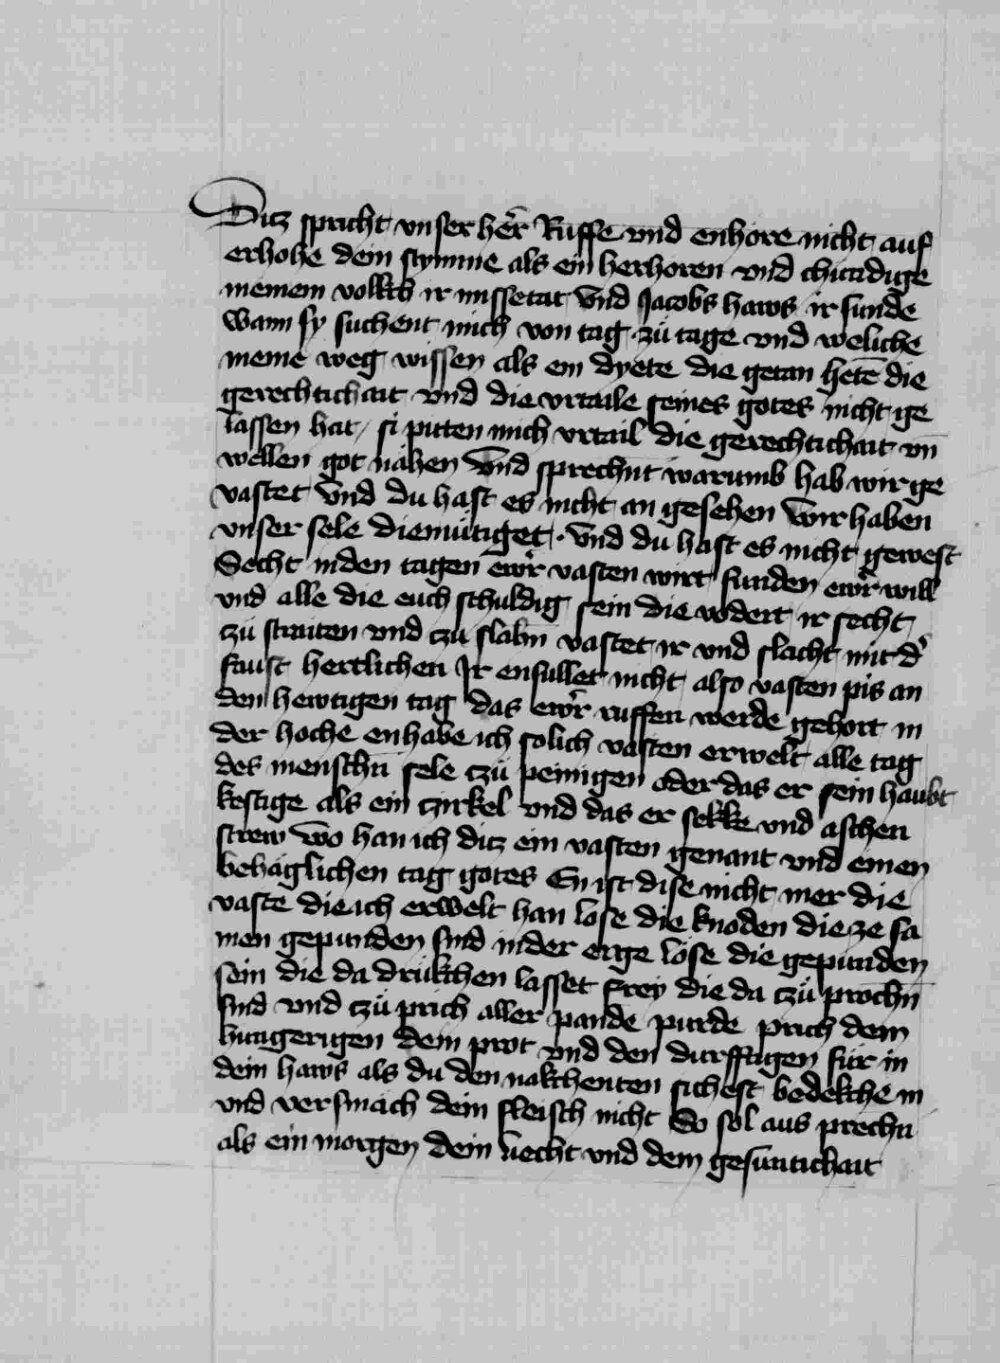 Ditz spricht vnser her̃ Ruffe vnd enhore nicht auf
erhohe dein stymme als ein herhoren vnd chundige
meinem vollkch ir missetat Vnd Jacobs haws ir sunde
Wann sy suchent mich von tag zů tage vnd weliche
meine weg wissen als ein dyete die getan hete die
gerechtichait vnd die vrtaile seines gotes nicht ge
lassen hat / si pitten mich vrtail die gerechtichait vñ
wellen got nahen Vnd sprechnt warumb hab wir ge
vastet Vnd du hast es nicht an gesehen Wir haben
vnser sele diemütiget · Vnd du hast es nicht gewest
Secht inden tagen ewr̃ vasten wirt funden ewr̃ will
vnd alle die euch schuldig sein die vodert ir secht
czü straiten vnd czu slahn vastet ir vnd slacht mit d̃
faust hertlichen Ir ensullet nicht also vasten pis an
den hewtigen tag das ewr̃ ruffen werde gehort in
der hoche enhabe ich solich vasten erwelt alle tag
des menschñ sele czü peinigen oder das er sein haubt
kestige als ein czirkel vnd das er sekke vnd aschen
strew wo han ich ditz ein vasten genant vnd einen
behäglichen tag gotes En ist dise nicht mer die
vaste die ich erwelt han lose die knoden die ze sa
men gepunden sind inder erge löse die gepunden
sein die da drükchen lasset frey die da czü prochñ
sind vnd czü prich aller pande purde prich dem
hungerigen dein prot vnd den durfftigen für in
dein haws als du den nakchenten sichest bedekche in
vnd versmäch dein fleisch nicht So sol aus prechñ
als ein morgen dein liecht vnd dein gesuntichait